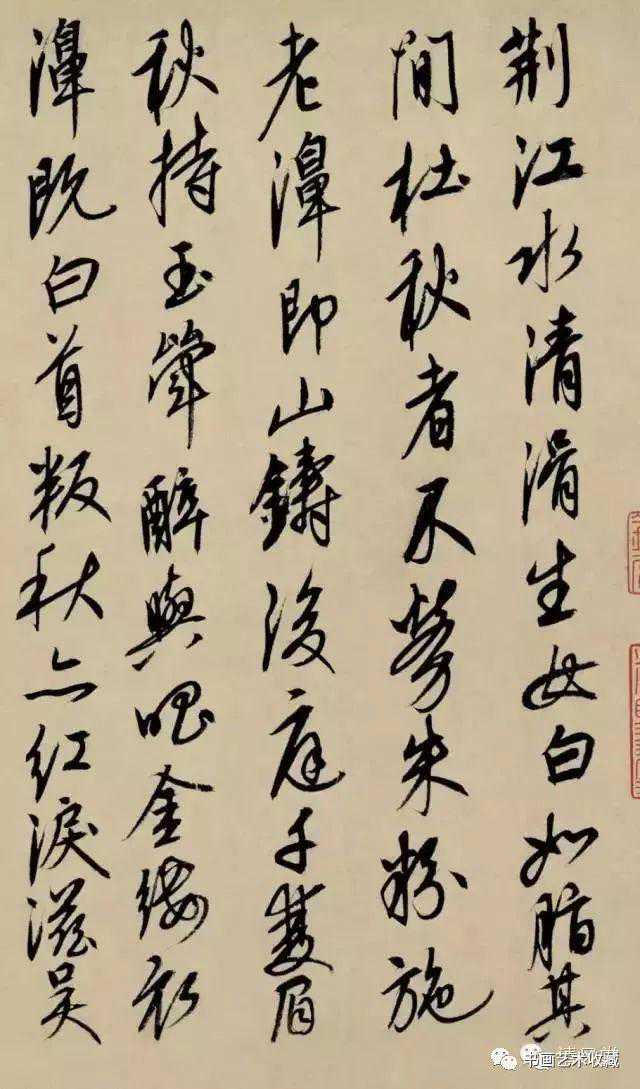 荆江水清滑生女白如脂其
間杜秋者不勞朱粉施
老濞即山鑄後庭千雙眉
秋持玉斝醉與唱金縷衣
濞既白首叛秋亦紅淚滋吳
书画艺术收藏